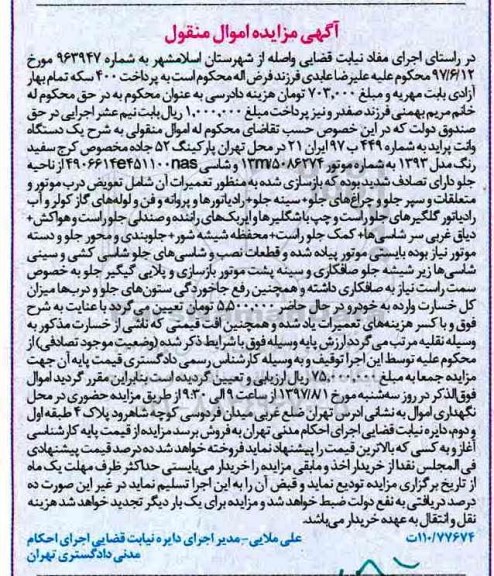 آگهی مزایده اموال منقول
در راستای اجرای مفاد نیابت قضایی واصله از شهرستان اسلامشهر به شماره ۹۶۳۹۴۷ مورخ
۹۷/۶/۱۲ محکوم علیه علیرضا عابدی فرزند فرض اله محکوم است به پرداخت ۴۰۰ سکه تمام بهار
آزادی بابت مهریه و مبلغ ۷۰۳٬۰۰۰ تومان هزینه دادرسی به عنوان محکوم به در حق محکوم له
خانم مریم بهمنی فرزند صفدر و نیز پرداخت مبلغ ۱٬۰۰۰٬۰۰۰ ریال بابت نیم عشر اجرایی در حق
صندوق دولت که در این خصوص حسب تقاضای محکوم له اموال منقولی به شرح یک دستگاه
وانت پراید به شماره ۴۴۹ ب ۹۷ ایران ۲۱ در محل تهران پارکینگ ۵۲ جاده مخصوص کرج سفید
رنگ مدل ۱۳۹۳ به شماره موتور ۱۳m/۵۰۸۶۲۷۴ و شاسی nas۴۵۱۱۰۰fe۴۹۰۶۶۱۴ از ناحیه
جلو دارای تصادف شدید بوده که بازسازی شده به منظور تعمیرات آن شامل تعویض درب موتور و
متعلقات و سپر جلو و چراغ‌های جلو+ سینه جلو+ رادیاتورها و پروانه و فن و لوله‌های گاز کولر و آب
رادیاتور گلگیرهای جلو راست و چپ با شگلیرها و ایربک‌های راننده و صندلی جلو راست و هواکش+
دیاق غربی سر شاسی‌ها+ کمک جلو راست+ محفظه شیشه شور+ جلوبندی و محور جلو و دسته
موتور نیاز بوده بایستی موتور پیاده شده و قطعات نصب و شاسی‌های جلو شاسی کشی و سینی
شاسی‌ها زیر شیشه جلو صافکاری و سینه پشت موتور بازسازی و پلایی گیگیر جلو به خصوص
سمت راست نیاز به صافکاری داشته و همچنین رفع جاخوردگی ستون‌های جلو و درب‌ها میزان
کل خسارت وارده به خودرو در حال حاضر ۵٬۵۰۰٬۰۰۰ تومان تعیین می‌گردد با عنایت به شرح
فوق و با کسر هزینه‌های تعمیرات یاد شده و همچنین افت قیمتی که ناشی از خسارت مذکور به
وسیله نقلیه مرتب می‌گردد ارزش پایه وسیله فوق با شرایط ذکر شده (وضعیت موجود تصادفی) از
محکوم علیه توسط این اجرا توقیف و به وسیله کارشناس رسمی دادگستری قیمت پایه آن جهت
مزایده جمعا به مبلغ ۷۵٬۰۰۰٬۰۰۰ ریال ارزیابی و تعیین گردیده است بنابراین مقرر گردید اموال
فوق‌الذکر در روز سه‌شنبه مورخ ۱۳۹۷/۸/۱ از ساعت ۹ الی ۹:۳۰ از طریق مزایده حضوری در محل
نگهداری اموال به نشانی آدرس تهران ضلع غربی میدان فردوسی کوچه شاهرود پلاک ۴ طبقه اول
و دوم، دایره نیابت قضایی اجرای احکام مدنی تهران به فروش برسد مزایده از قیمت پایه کارشناسی
آغاز و به کسی که بالاترین قیمت را پیشنهاد نماید فروخته خواهد شد ده درصد قیمت پیشنهادی
فی المجلس نقدا از خریدار اخذ و مابقی مزایده را خریدار می‌بایستی حداکثر ظرف مهلت یک ماه
از تاریخ برگزاری مزایده تودیع نماید و قبض آن را به این اجرا تسلیم نماید در غیر این صورت ده
درصد دریافتی به نفع دولت ضبط خواهد شد و مزایده برای یک بار دیگر تجدید خواهد شد هزینه
نقل و انتقال به عهده خریدار می‌باشد.
۱۱۰/۷۷۶۷۴ت علی ملایی – مدیر اجرای دایره نیابت قضایی اجرای احکام
مدنی دادگستری تهران